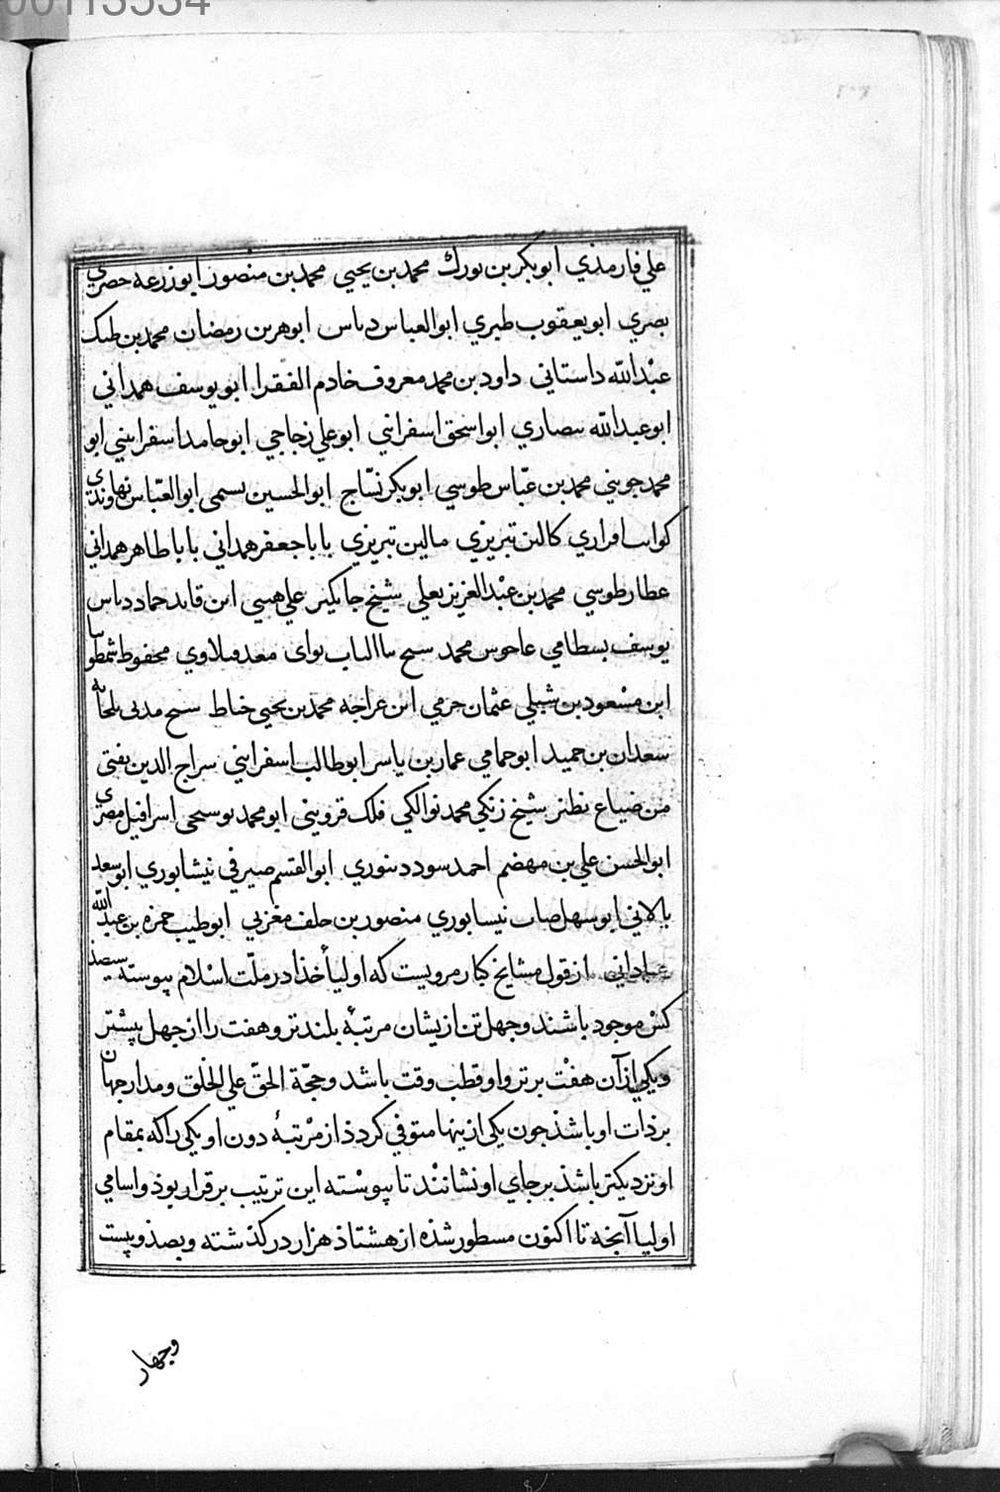 00113534
علي فارمذي ابوبكر بن بورك محمد بن يحيي محمد بن منصور ابوزرعه حصري
بصري ابو يعقوب طبري ابوالعباس دىاس ابوهر بن رمضان محمد بن طىک
عبدالله داستاني داود بن محمد معروف خادم الفقرا ابويوسف همداني
ابوعبدالله سصاري ابواسحق اسفرايني ابوعلي زجاجي ابوحامد اسفرايني ابو
محمد جويني محمد بن عبّاس طوسي ابوبكر نسّاج ابوالحسين ىسمى ابوالعبّاس نهاوندي
تبريزي مالين تبريزي بابا جعفر همداني بابا طاهر همداني
عطار طوسي محمد بن عبدالعزيز يعلي شيخ جاىكير علي هىىى ابن قايد حماد دىاس
يوسف بسطامي محمد محفوظ
ابن مسعود بن شبلي عثمان حرمي ابن عراجه محمد بن يحيي خىاط سىح مدىى
سعدان بن حميد ابوحمامي عمار بن ياسر ابوطالب اسفرايني سراج الدين بفتى
من ضياع نطنز شيخ زنكي محمد نوالكي فلک قزويني ابومحمد اسرافيل مصري
ابوالحسن علي بن مهضم احمد سود دىنوري ابوالقسم صيرفي نيشابوري ابوسعد
يالاني ابوسهل نيسابوري منصور بن خلف مغربي ابوطيب حمزه بن عبدالله
عبادانی از قول مشايخ كبار مرويست كه اولياء خذا در ملّت اسلام پيوسته سيصذ
كس موجود باشند و چهل تن ازيشان مرتبهٔ بلندتر و هفت را از چهل پيشتر
و يكي از آن هفت برتر و او قطب وقت باشد و حجّة الحقّ علي الخلق و مدار جهان
بر ذات او باشذ چون يكي ازينها متوفي كردذ از مرتبهٔ دون او يكي را كه بمقام
او نزديكتر باشذ بر جاي او نشانند تا پيوسته اين ترتيب بر قرار بوذ و اسامي
اوليا آنچه تا اكنون مسطور شذه از هشتاذ هزار در كذشته و بصذ و بيست
و چهار